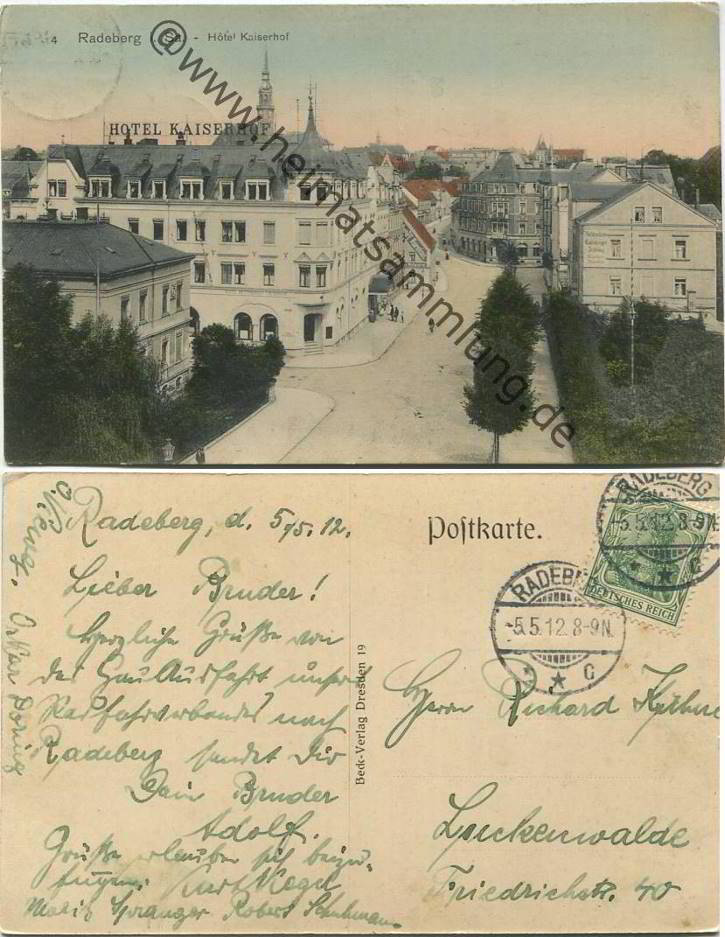 4 Radeberg i. Sa. - Hôtel Kaiserhof
HOTEL KAISERHOF
@www.heimatsammlung.de
Radeberg, d. 5/5. 12.
Lieber Bruder!
Herzliche Grüße von
der Gau Ausfahrt unseres
Radfahrverbandes nach
Radeberg sendet Dir
Dein Bruder
Adolf.
Grüße erlauben sich beizu-
fügen. Kurt
Moritz Spranger Robert Schuhmann
Oskar Döring
Beck-Verlag Dresden 19
Postkarte.
RADEBERG
-5.5.12.8-9N.
* * C
DEUTSCHES REICH
RADEBERG
-5.5.12.8-9N.
* * C
Herrn Richard
Luckenwalde
Friedrichstr. 40